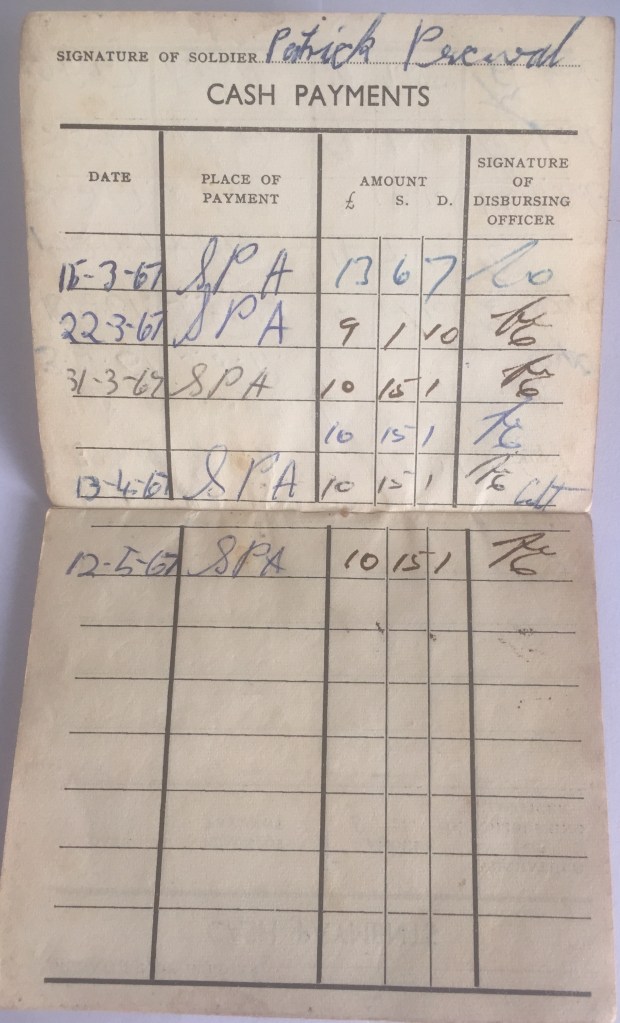 SIGNATURE OF SOLDIER Patrick Percival
CASH PAYMENTS
DATE PLACE OF PAYMENT AMOUNT £ S. D. SIGNATURE OF DISBURSING OFFICER
15-3-67 SPA 13 6 7
22-3-67 SPA 9 1 10
31-3-67 SPA 10 15 1
10 15 1
13-4-67 SPA 10 15 1
12-5-67 SPA 10 15 1